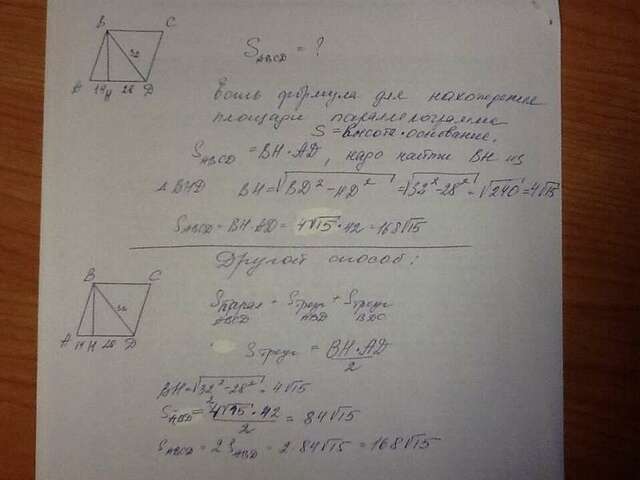 B C
32
A 14 H 28 D
S ABCD = ?
Есть формула для нахождение
площади параллелограмма
S = высота · основание.
S ABCD = BH · AD, надо найти BH из
Δ BHD BH = √(BD² − HD²) = √(32² − 28²) = √240 = 4√15
S ABCD = BH · AD = 4√15 · 42 = 168√15
Другой способ:
B C
32
A 14 H 28 D
S парал ABCD = S треуг ABD + S треуг BDC
S треуг = BH · AD / 2
BH = √(32² − 28²) = 4√15
S ABD = 4√15 · 42 / 2 = 84√15
S ABCD = 2 S ABD = 2 · 84√15 = 168√15